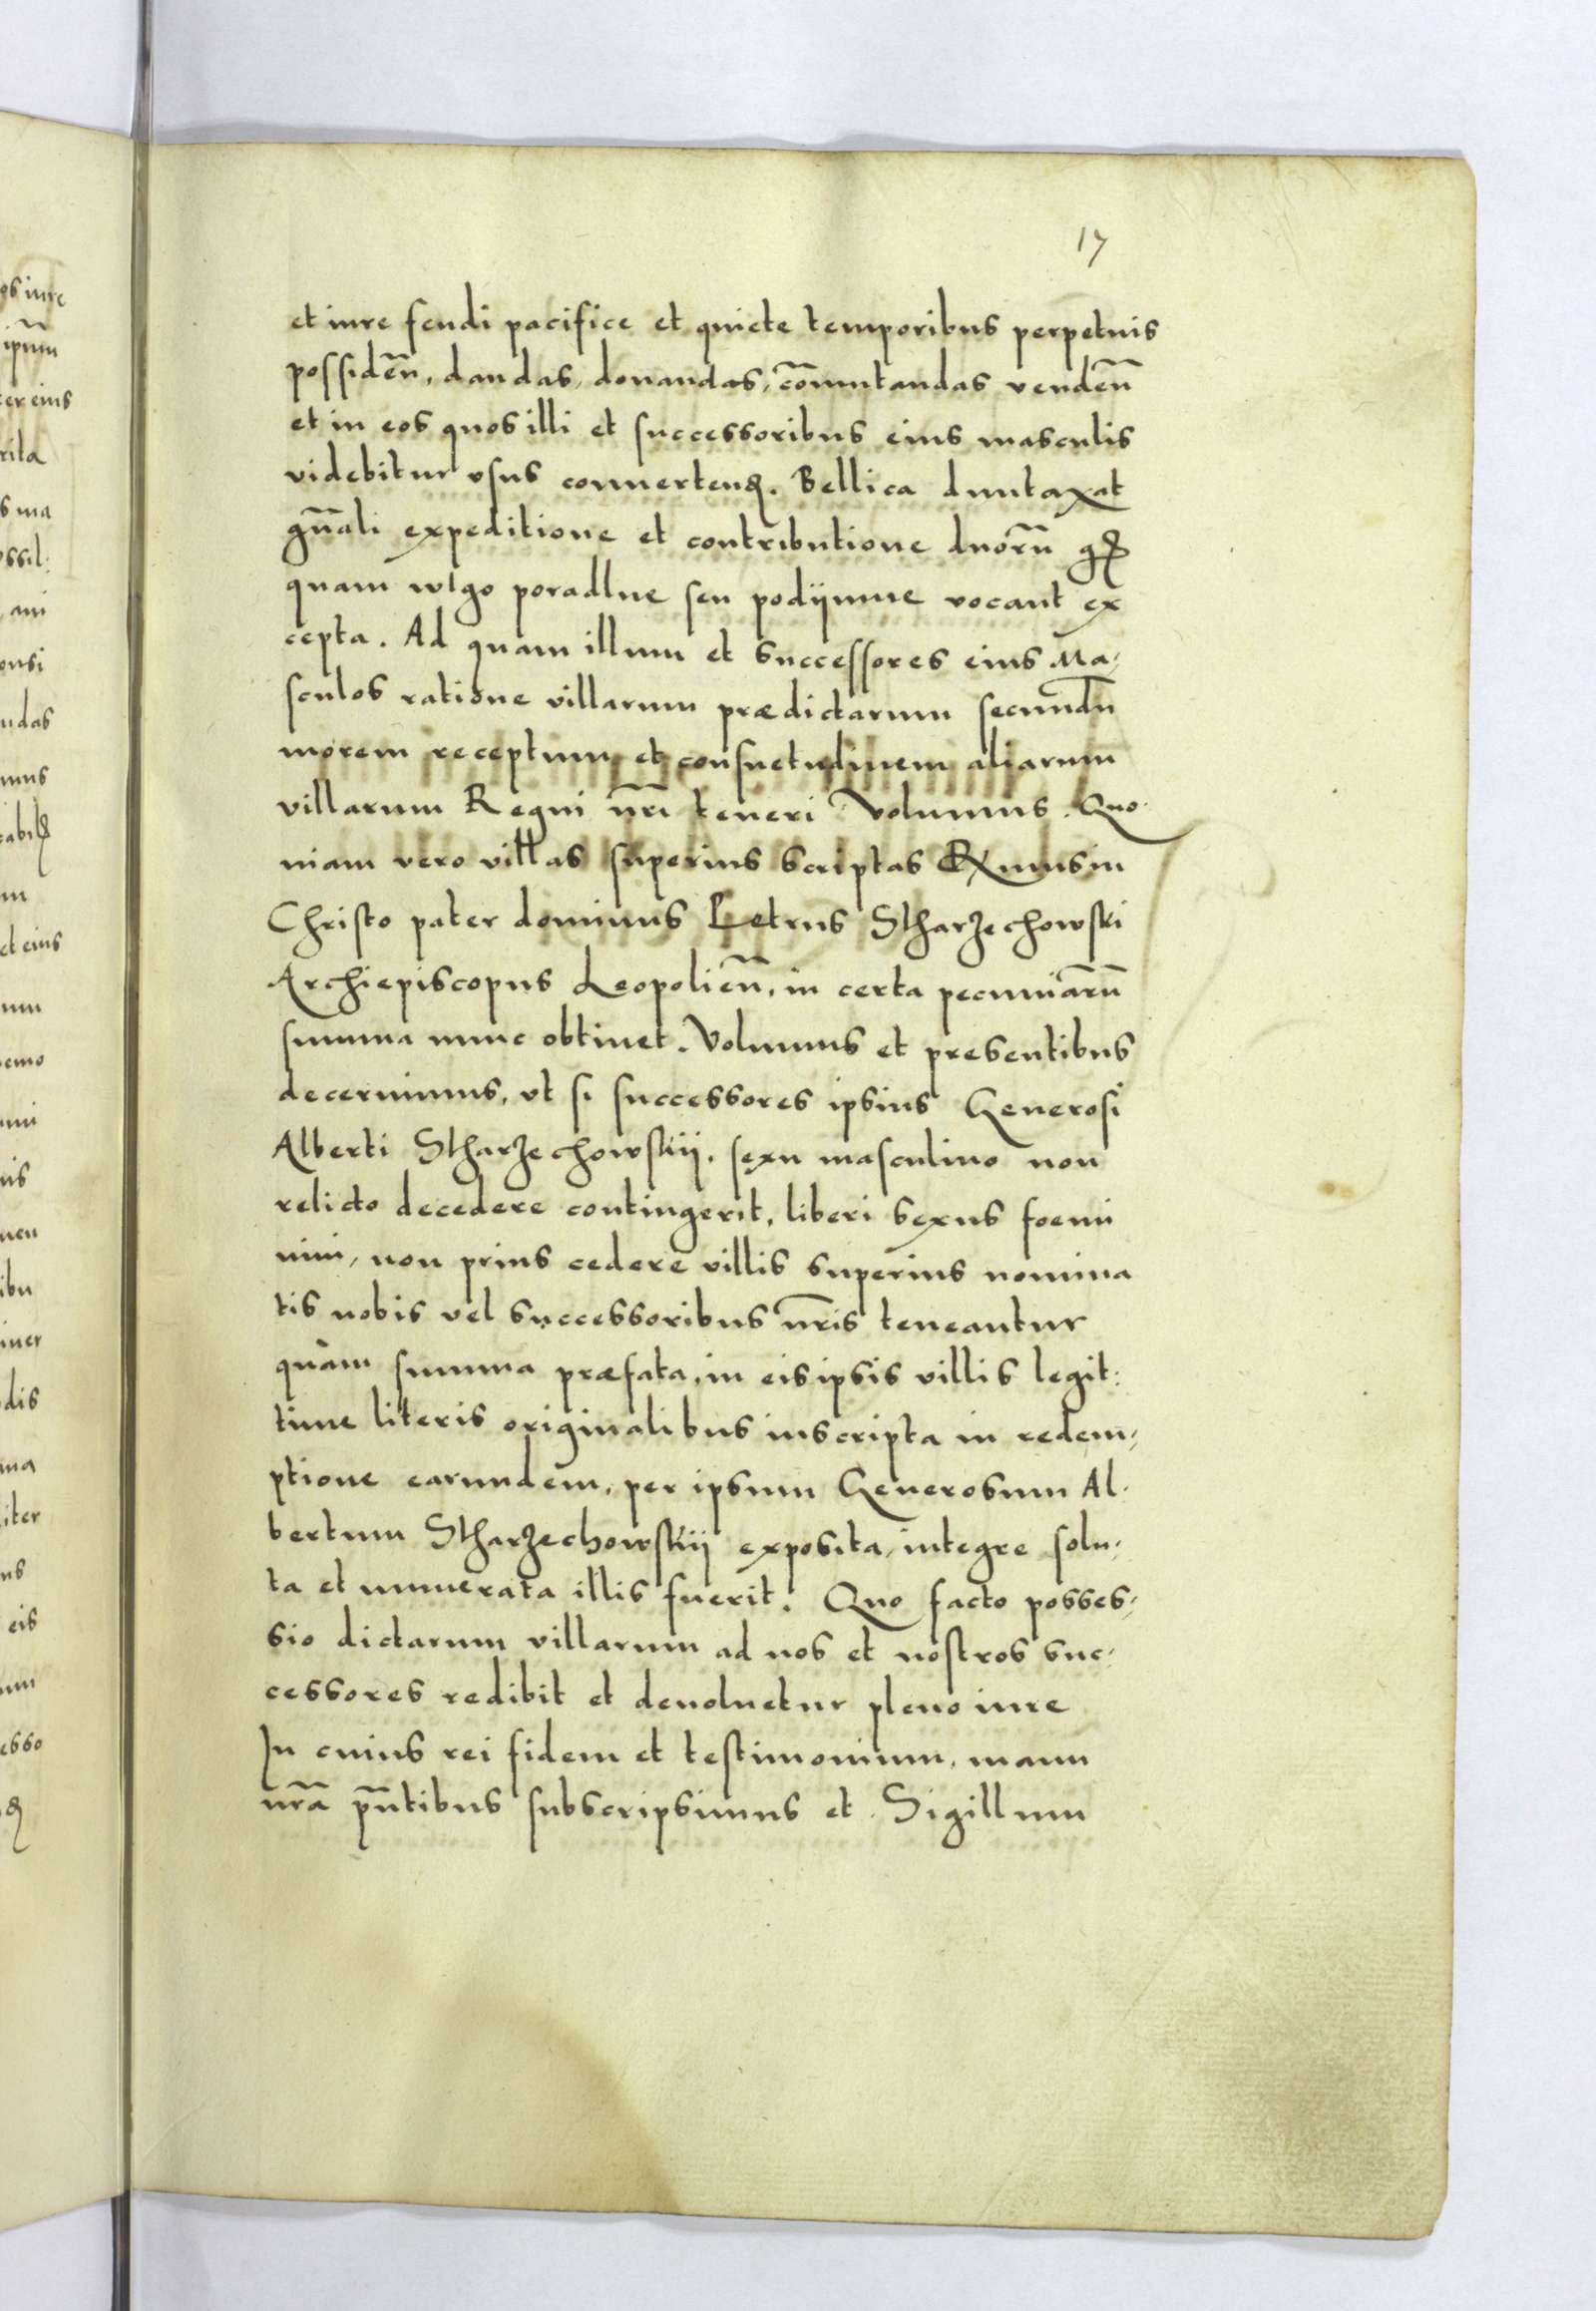 17
et iure feudi pacifice et quiete temporibus perpetuis
possidēn, dandas, donandas, cōmutandas vendēn
et in eos quos illi et successoribus eius masculis
videbitur vsus conuerteñ. Bellica duntaxat
gn̄ali expeditione et contributione duorū
quam wlgo poradlne seu podijmne vocant ex
cepta. Ad quam illum et successores eius Ma-
sculos ratione villarum prædictarum secundū
morem receptum et consuetudinem aliarum
villarum Regni nr̄i teneri volumus. Quo-
niam vero villas superius scriptas Rx̄mus in
Christo pater dominus Petrus Stharzechowski
Archiepiscopus Leopoliēn, in certa pecuniarū
summa nunc obtinet. Volumus et presentibus
decernimus, vt si successores ipsius Generosi
Alberti Stharzechowskij, sexu masculino non
relicto decedere contingerit, liberi sexus foemi
nini, non prius cedere villis superius nomina
tis nobis vel successoribus nr̄is teneantur
quàm summa præfata, in eis ipsis villis legit:
time literis originalibus inscripta in redem-
ptione earundem, per ipsum Generosum Al-
bertum Stharzechowskij exposita, integre solu-
ta et numerata illis fuerit. Quo facto posses-
sio dictarum villarum ad nos et nostros suc-
cessores redibit et deuoluetur pleno iure
In cuius rei fidem et testimonium, manu
nr̄a pn̄tibus subscripsimus et Sigillum